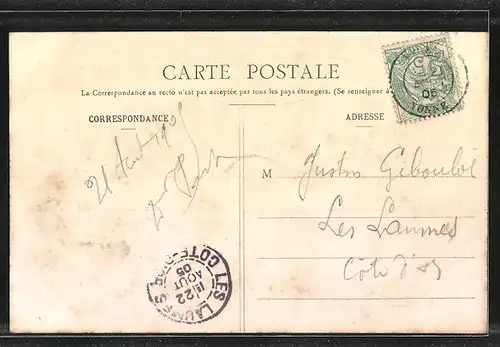 CARTE POSTALE
La Correspondance au recto n'est pas acceptée par tous les pays étrangers. (Se renseigner à
CORRESPONDANCE
ADRESSE
05
YONNE
21 Aout 1905
M Justin Giboulot
Les Laumes
Côte d'Or
LES LAUMES COTE-D'OR
22
AOUT
05